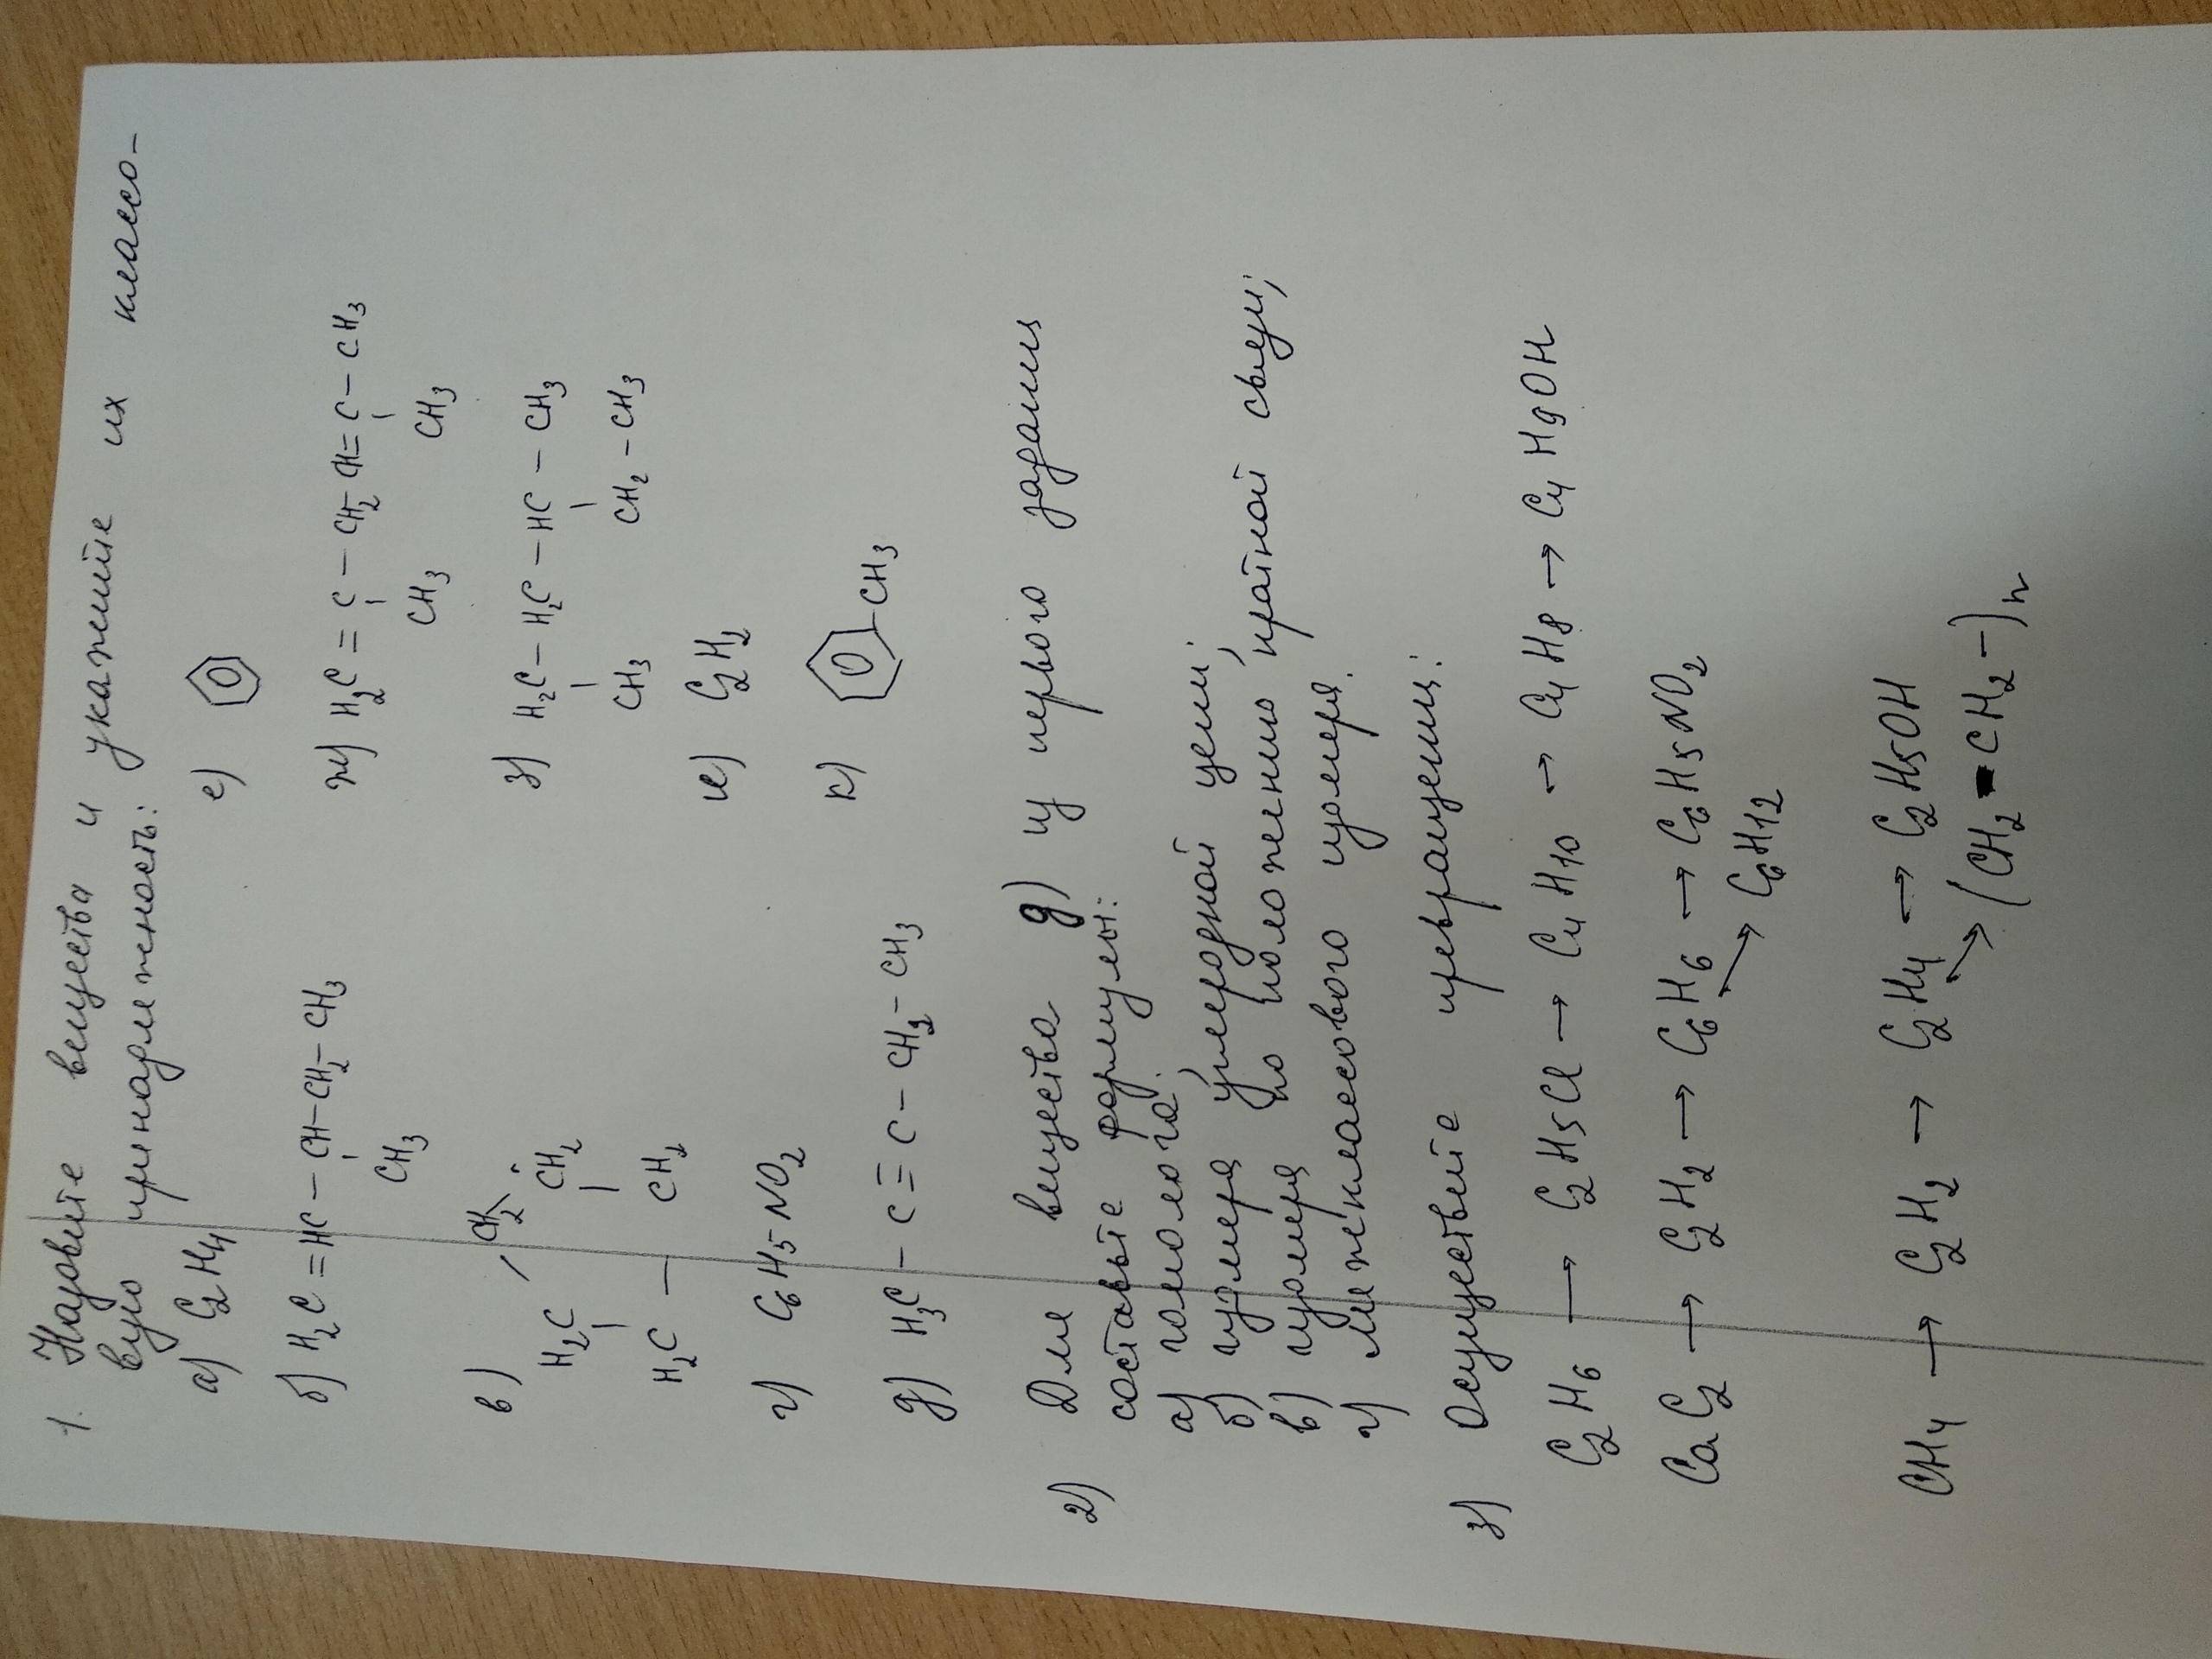 1. Назовите вещества и укажите их классо-
вую принадлежность:
а) C2H4
е)
б) H2C = HC – CH – CH2 – CH3
CH3
ж) H2C = C – CH2 – CH = C – CH3
CH3 CH3
в) CH2
H2C CH2
H2C — CH2
з) H2C – H2C – HC – CH3
CH3 CH2 – CH3
г) C6H5NO2
и) C2H2
д) H3C – C ≡ C – CH2 – CH3
к) CH3
2) Для вещества д) из первого задания
составьте формулы:
а) гомолога,
б) изомера углеродной цепи;
в) изомера по положению кратной связи;
г) межклассового изомера.
3) Осуществите превращения:
C2H6 → C2H5Cl → C4H10 → C4H8 → C4H9OH
CaC2 → C2H2 → C6H6 → C6H5NO2
↘ C6H12
CH4 → C2H2 → C2H4 → C2H5OH
↘ (CH2 - CH2 –)n